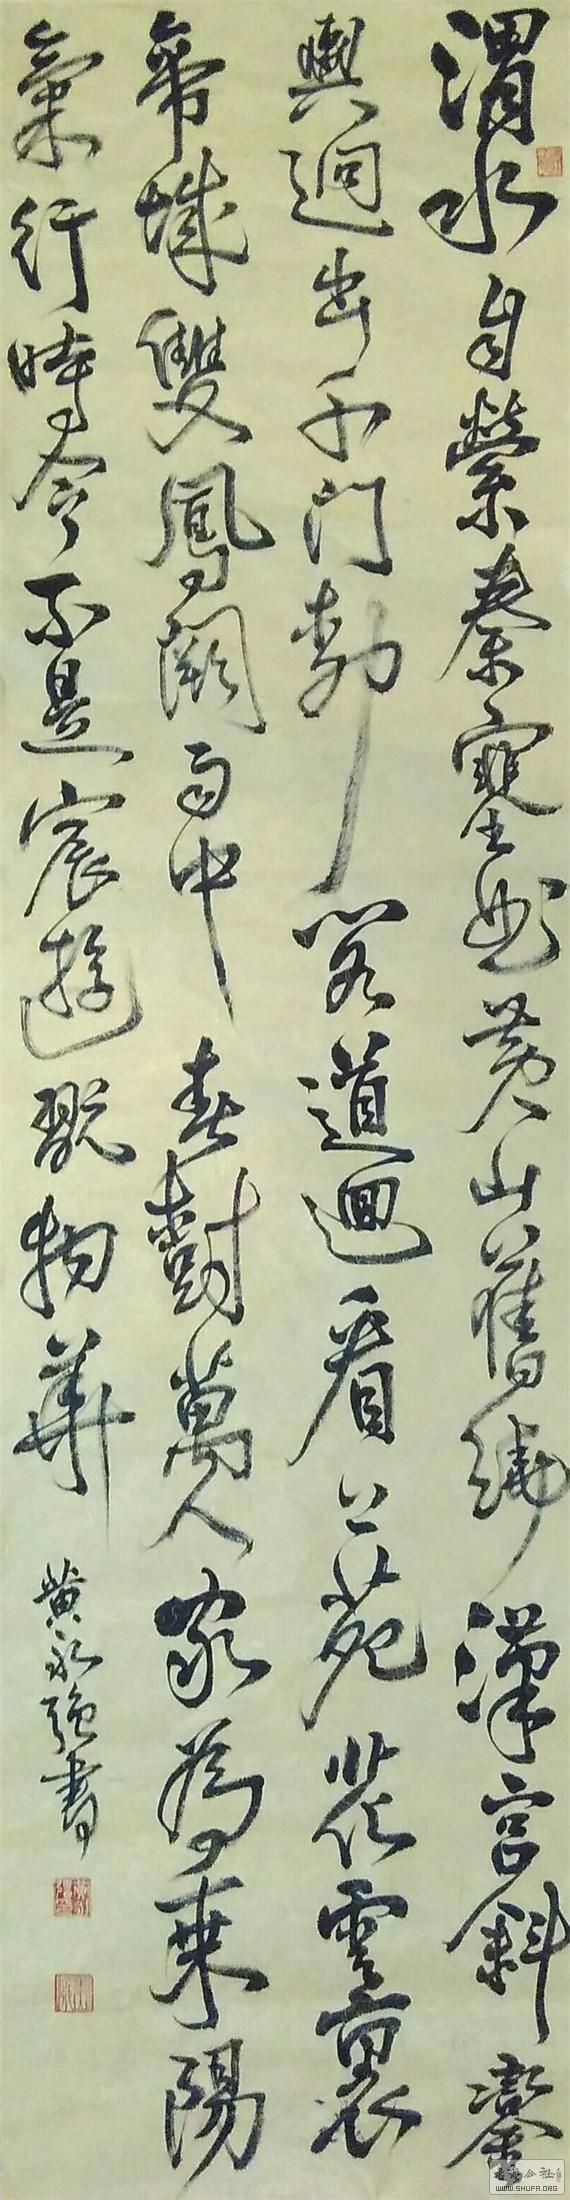 渭水自縈秦塞曲黃山舊繞漢宮斜鑾
輿迥出千門柳閣道迴看上苑花雲裏
帝城雙鳳闕雨中春樹萬人家為乘陽
氣行時令不是宸遊翫物華
黄永强書
书法公社
WWW.SHUFA.ORG